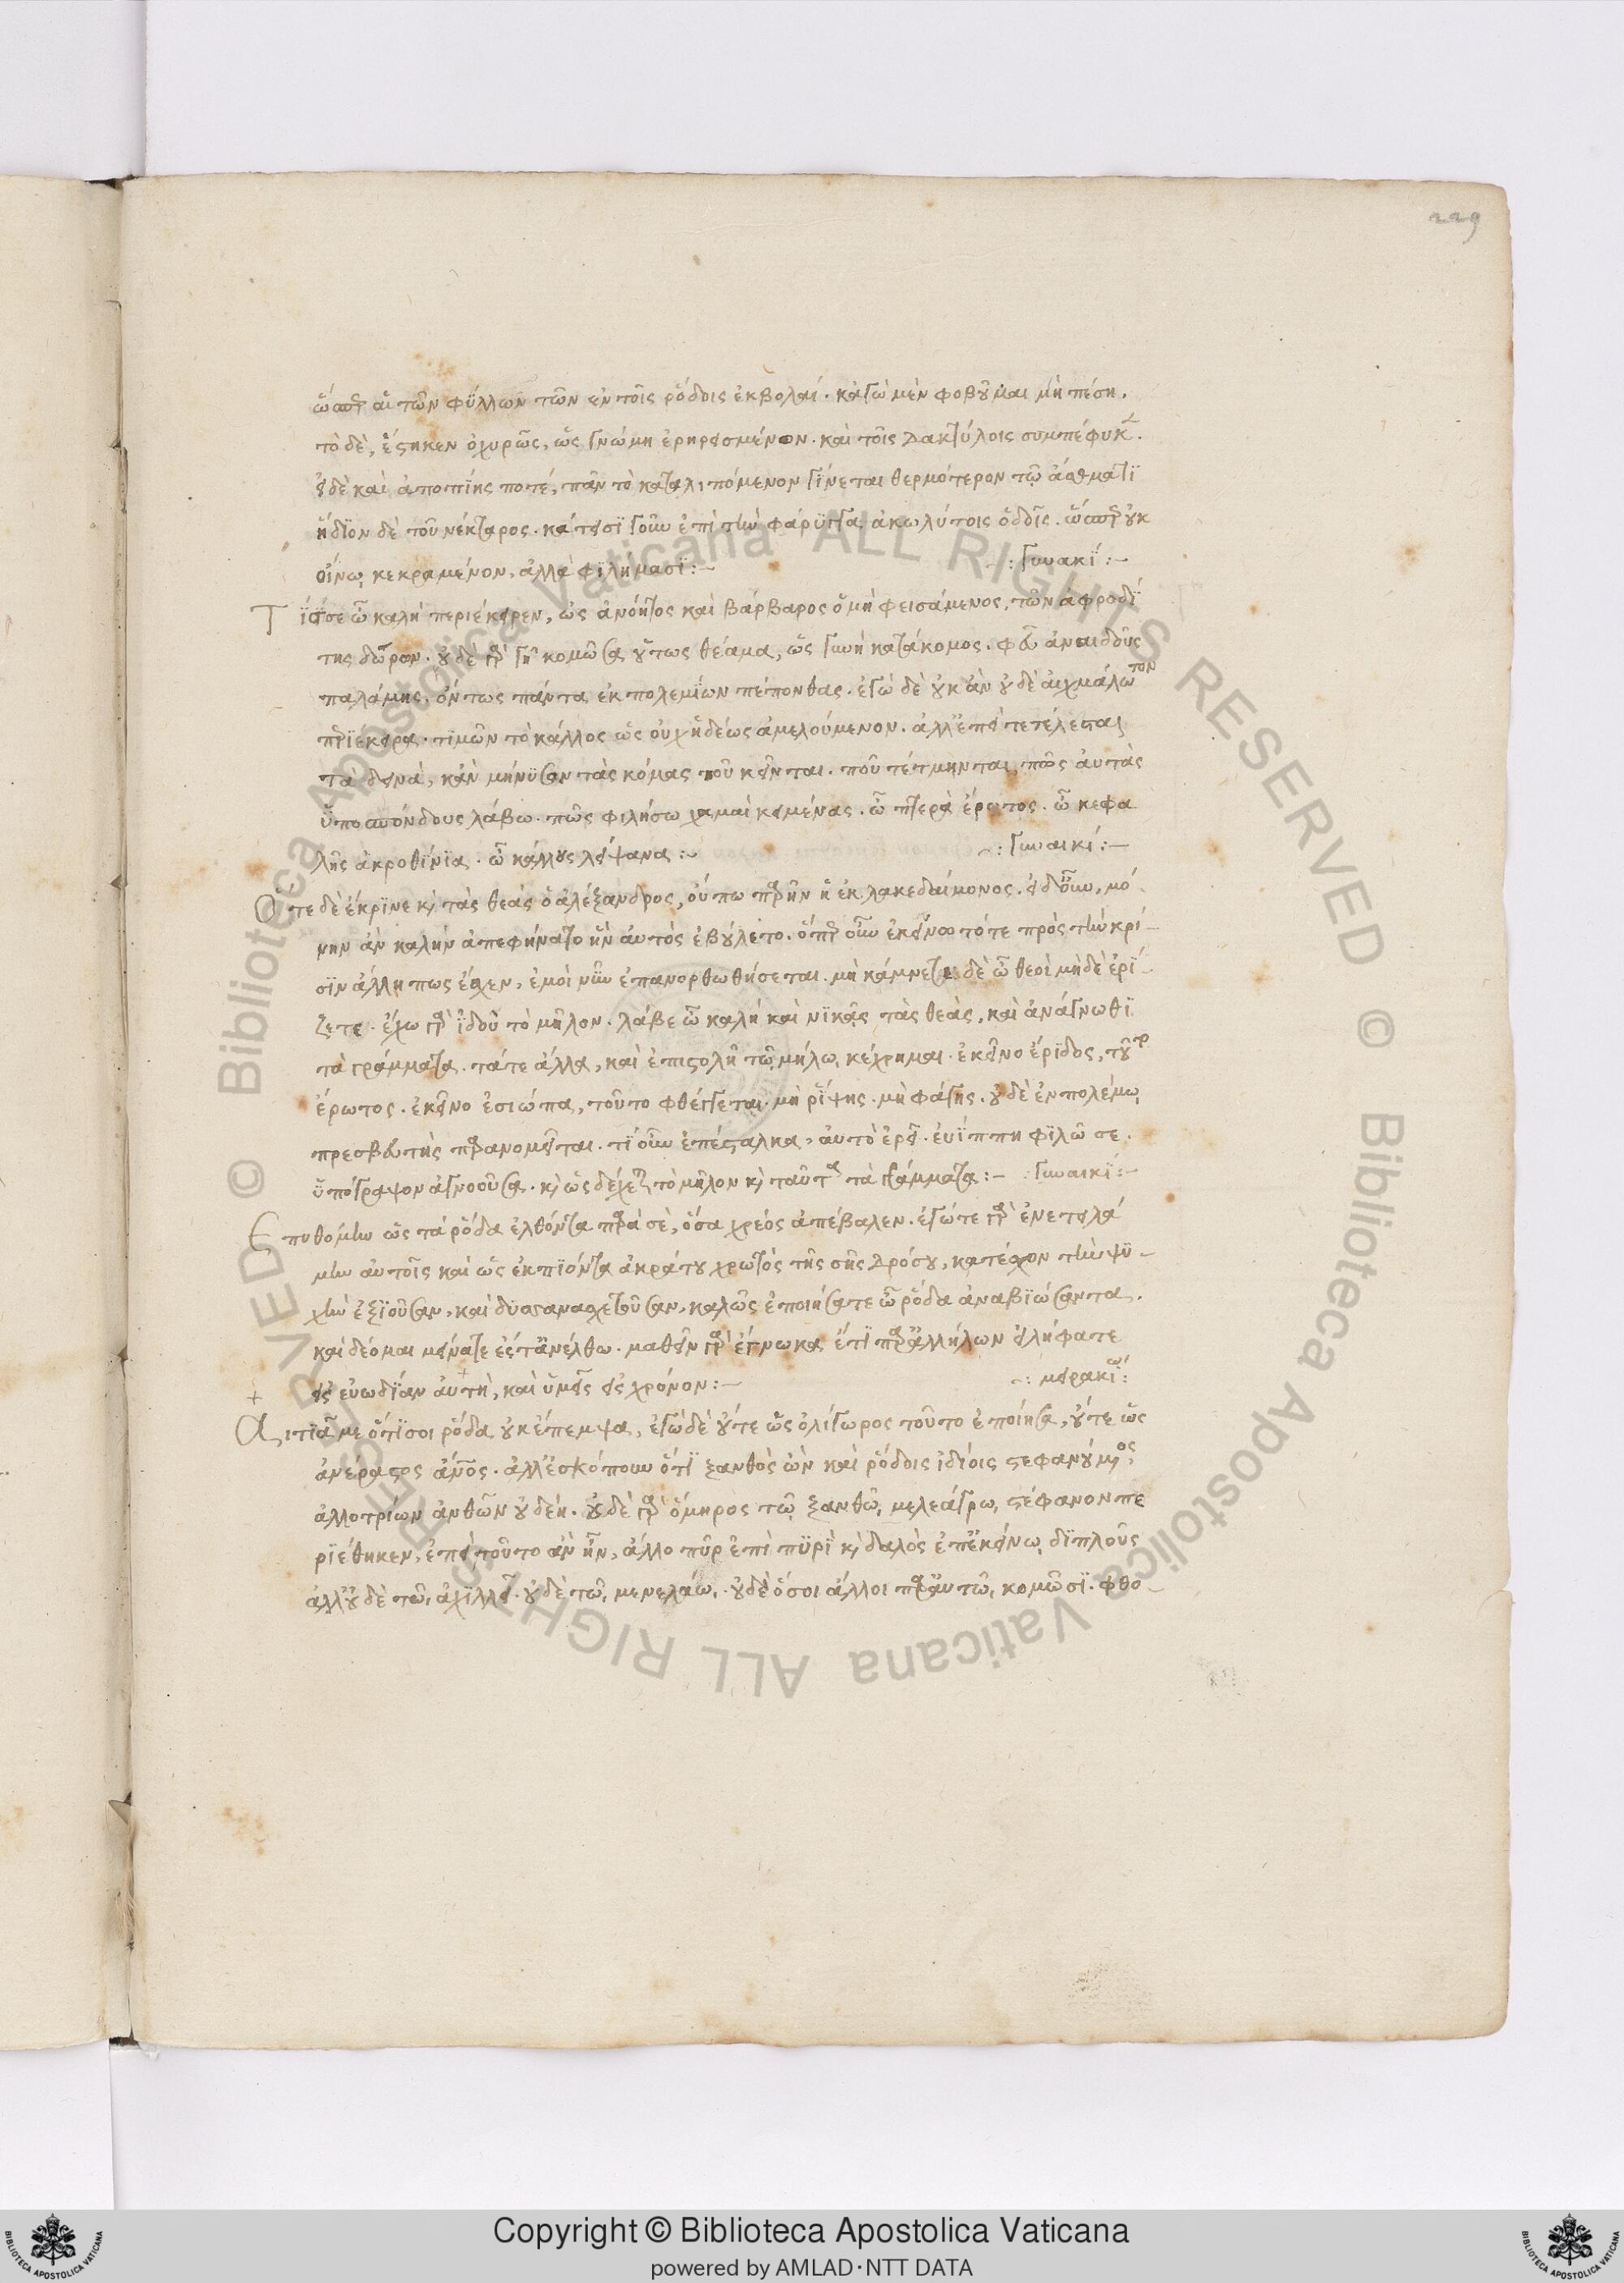 229
ὥσπερ αἱ τῶν φύλλων τῶν ἐν τοῖς ῥόδοις ἐκβολαί. κἀγὼ μὲν φοβοῦμαι μὴ πέση.
τὸ δὲ, ἕστηκεν ὀχυρῶς, ὡς γνώμη ἐρηρεισμένον. καὶ τοῖς δακτύλοις συμπέφυκε.
εἰ δὲ καὶ ἀποπίης ποτέ, πᾶν τὸ καταλιπόμενον γίνεται θερμότερον τῷ ἄσθματι
ἥδιον δὲ τοῦ νέκταρος. κάτεισι γοῦν ἐπὶ τὴν φάρυγγα ἀκωλύτοις ὁδοῖς. ὥσπερ οὐκ
οἴνω κεκραμένον, ἀλλὰ φιλήμασι :- -: γυναικί :-
Τίς σε ὦ καλὴ περιέκειρεν, ὡς ἀνόητος καὶ βάρβαρος ὁ μὴ φεισάμενος, τῶν ἀφροδί
της δώρων. οὐδὲ γὰρ γῆ κομῶσα οὕτως θέαμα, ὡς γυνὴ κατάκομος. φεῦ ἀναιδοῦς
παλάμης. ὄντως πάντα ἐκ πολεμίων πέπονθας. ἐγὼ δὲ οὐκ ἂν οὐδὲ αἰχμάλωτον
περιέκειρα. τιμῶν τὸ κάλλος ὡς οὐχ ἡδέως ἀμελούμενον. ἀλλ' ἐπεὶ τετέλεσται
τὰ δεινὰ, κἂν μήνυσαν τὰς κόμας ποῦ κεῖνται. ποῦ τέτμηνται, πῶς αὐτὰς
ὑποσπόνδους λάβω. πῶς φιλήσω χαμαὶ κειμένας. ὦ πτερὰ ἔρωτος. ὦ κεφα
λῆς ἀκροθίνια. ὦ κάλλους λείψανα :- -: γυναικί :-
Ὅτε δὲ ἔκρινε κ τὰς θεὰς ὁ ἀλέξανδρος, οὔπω παρῆν ἡ ἐκ λακεδαίμονος. εἰ δ' οὖν, μό
νην ἂν καλὴν ἀπεφήνατο ἣν αὐτὸς ἐβούλετο. ὅπερ οὖν ἐκείνω τότε πρὸς τὴν κρί-
σιν ἄλλη πως ἔσχεν, ἐμοὶ νῦν ἐπανορθωθήσεται. μὴ κάμνετε δὲ ὦ θεοὶ μὴ δὲ ἐρί-
ζετε. ἔχω γὰρ ἰδοὺ τὸ μῆλον. λάβε ὦ καλὴ καὶ νίκας τὰς θεάς, καὶ ἀνάγνωθι
τὰ γράμματα. τά τε ἄλλα, καὶ ἐπιστολῆ τῷ μήλω κέχρημαι. ἐκεῖνο ἔριδος, τοῦτο
ἔρωτος. ἐκεῖνο ἐσιώπα, τοῦτο φθέγγεται. μὴ ῥίψης. μὴ φάγης. οὐδὲ ἐν πολέμω
πρεσβευτὴς παρανομεῖται. τί οὖν ἐπέσταλκα, αὐτὸ ἐρεῖ. εὐίππη φιλῶ σε.
ὑπόγραψον ἀγνοοῦσα. κ ὡς δέχεται τὸ μῆλον κ ταῦτα τὰ γράμματα :- : γυναικί :-
Ἐπυθόμην ὡς τὰ ῥόδα ἐλθόντα παρὰ σὲ, ὅσα χρεὸς ἀπέβαλεν. ἐγώ τε γὰρ ἐνετειλά
μην αὐτοῖς καὶ ὡς ἐκπιόντα ἀκράτου χρωτὸς τῆς σῆς δρόσου, κατέσχον τὴν ψυ-
χὴν ἐξιοῦσαν, καὶ δυσανασχετοῦσαν, καλῶς ἐποιήσατε ὦ ῥόδα ἀναβιώσαντα.
καὶ δέομαι μείνατε ἔστ' ἀνέλθω. μαθεῖν γὰρ ἔγνωκα ἔτι παρ' ἀλλήλων εἰλήφατε
+ εἰς εὐωδίαν αὐτὴ, καὶ ὑμεῖς εἰς χρόνον :- -: μειρακίω :
Αἰτιᾶ με ὅτι σοι ῥόδα οὐκ ἔπεμψα, ἐγὼ δὲ οὔτε ὡς ὀλίγωρος τοῦτο ἐποίησα, οὔτε ὡς
ἀνέραστος ἀνος. ἀλλ' ἐσκόπουν ὅτι ξανθὸς ὢν καὶ ῥόδοις ἰδίοις στεφανούμενος,
ἀλλοτρίων ἀνθῶν οὐ δέη. οὐδὲ γὰρ ὅμηρος τῷ ξανθῷ μελεάγρω στέφανον πε
ριέθηκεν, ἐπεὶ τοῦτο ἂν ἦν, ἄλλο πῦρ ἐπὶ πυρὶ κ δαλὸς ἐπ' ἐκείνω διπλοῦς
ἀλλ' οὐδὲ τῷ ἀχιλλεῖ. οὐδὲ τῷ μενελάω. οὐδὲ ὅσοι ἄλλοι παρ' αὐτῷ κομῶσι. φθο-
Copyright © Biblioteca Apostolica Vaticana
powered by AMLAD·NTT DATA